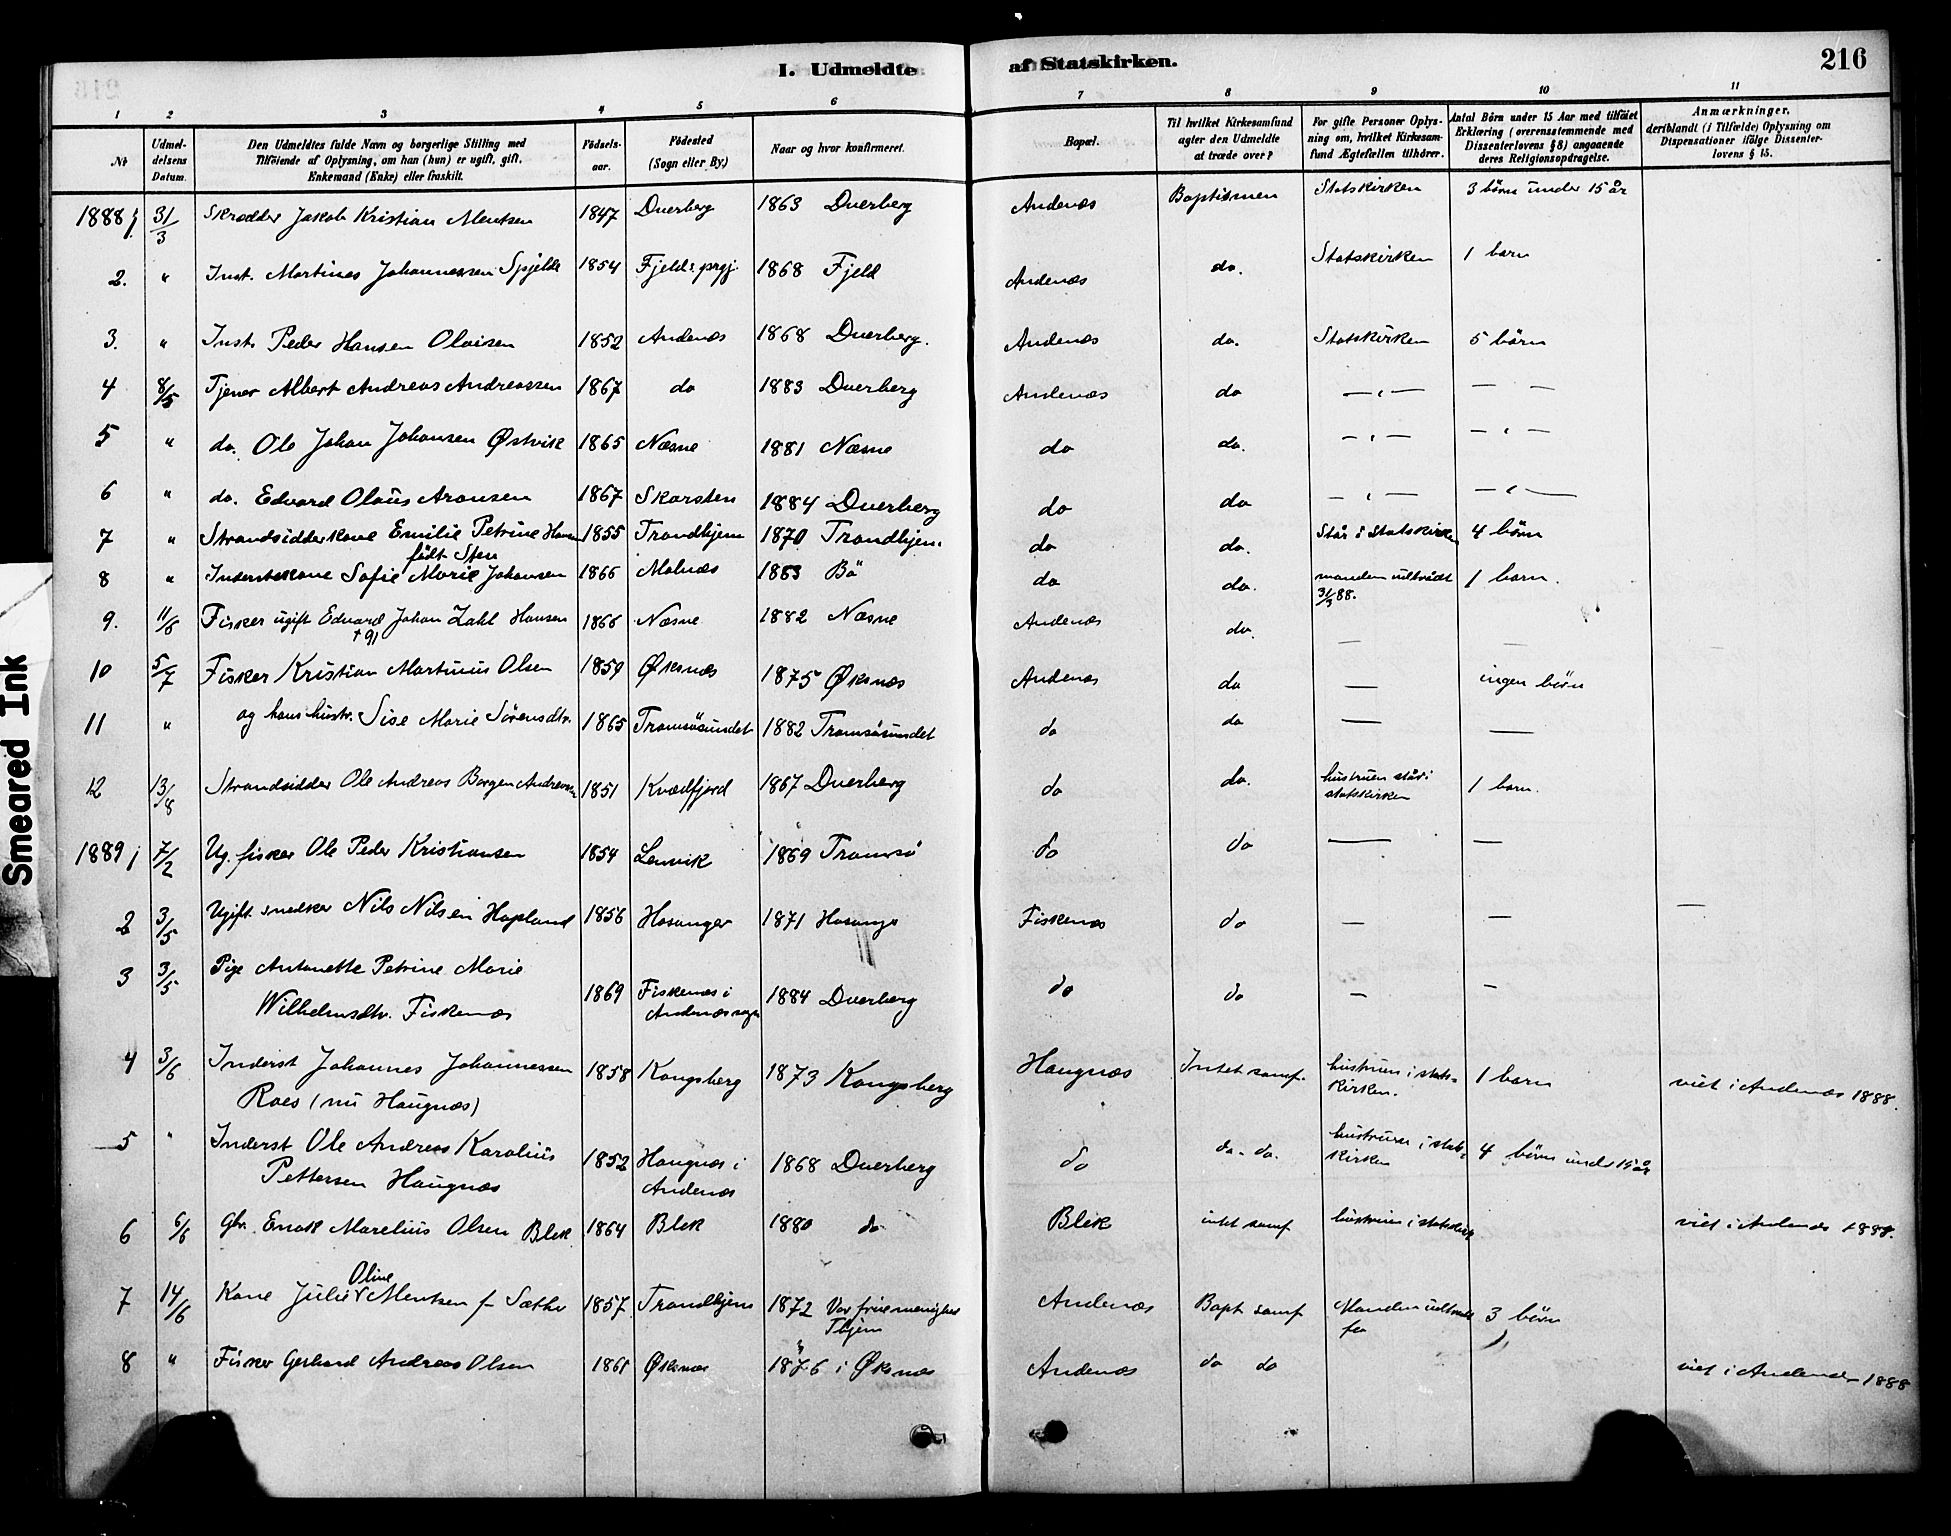 I. Udmeldte af Statskirken. 216
1 2 3 4 5 6 7 8 9 10 11
No
Udmel-
delsens
Datum.
Den Udmeldtes fulde Navn og borgerlige Stilling med
Tilföiende af Oplysning, om han (hun) er ugift, gift,
Enkemand (Enke) eller fraskilt.
Födsels-
aar.
Födested
(Sogn eller By.)
Naar og hvor konfirmeret.
Bopæl.
Til hvilket Kirkesamfund
agter den Udmeldte
at træde over?
For gifte Personer Oplys-
ning om, hvilket Kirkesam-
fund Ægtefællen tilhörer.
Antal Börn under 15 Aar med tilföiet
Erklæring (overensstemmende med
Dissenterlovens § 8) angaaende
deres Religionsopdragelse.
Anmærkninger,
deriblandt (i Tilfælde) Oplysning om
Dispensationer ifölge Dissenter-
lovens § 15.
1888 1 31/3 Skrædder Jakob Kristian Mentsen 1847 Dverberg 1863 Dverberg Andenæs Baptismen Statskirken 3 börn under 15 år
2. " Inst. Martines Johannessen Spjelde 1854 Fjelds prgj. 1868 Fjeld Andenæs do. Statskirken 1 barn
3. " Inst. Peder Hansen Olaisen 1852 Andenæs 1868 Dverberg. Andenæs do. Statskirken 5 börn
4 8/5 Tjener Albert Andreas Andreassen 1867 do 1883 Dverberg Andenæs do — " — — —
5 " do. Ole Johan Johansen Østvik 1865 Næsne 1881 Næsne do do. — " — — " —
6 " do. Edvard Olaüs Aronsen 1867 Skarsten 1884 Dverberg do do — " — — " —
7 " Strandsidderkone Emilie Petrine Hansen 1855 Trondhjem 1870 Trondhjem. do do. Står i Statskirken 4 börn
födt Sten
8 " Inderstekone Sofie Marie Johansen 1866 Malnæs 1883 Bö do do. manden udtrådt 1 barn.
31/3 88.
9. 11/6 Fisker ugift Edvard Johan Zahl Hansen 1866 Næsne 1882 Næsne Andenæs do. — —
† 91
10 5/7 Fisker Kristian Martinius Olsen 1859 Øksnæs 1875 Øksnæs Andenæs do — ingen börn
11 " og hans hustr. Sise Marie Sörensdtr. 1865 Tromsösundet 1882 Tromsösundet do do — —
12 13/8 Strandsidder Ole Andreas Borgen Andreassen 1851 Kvædfjord 1867 Dverberg do do. hustruen står i 1 barn.
statskirken
1889 1 7/2 Ug. fisker Ole Peder Kristiansen 1854 Lenvik 1869 Tromsö do do — —
2 3/5 Ugift snedker Nils Nilsen Hopland 1856 Hosanger 1871 Hosanger Fiskenæs do — — —
3 3/5 Pige Antonette Petrine Marie
Wilhelmsdtr. Fiskenæs 1869 Fiskenæs i 1884 Dverberg do do — —
Andenæs sogn
4 3/6 Inderst Johannes Johannessen 1858 Kongsberg 1873 Kongsberg Haugnæs Intet samf. hustruen i stats- 1 barn viet i Andenæs 1888.
Roes (nu Haugnæs) kirken.
5 " Inderst Ole Andreas Karolius 1852 Haugnæs i 1868 Dverberg do do. do. hustruen i stats- 4 börn under 15 år
Pettersen Haugnæs Andenæs kirken
6 6/6 Gbr. Enok Marelius Olsen Blek 1864 Blek 1880 do Blek intet samf hustruen i statskirk. viet i Andenæs 1888.
Oline
7 14/6 Kone Julie Mentsen f. Sæther 1857 Trondhjem 1872 Vor frue menighed Andenæs Bapt samf Manden udtraadt 3 börn
Thjem
8 " Fisker Gerhard Andreas Olsen 1861 Øksnæs 1876 i Øksnæs Andenæs do do viet i Andenæs 1888
Smeared Ink